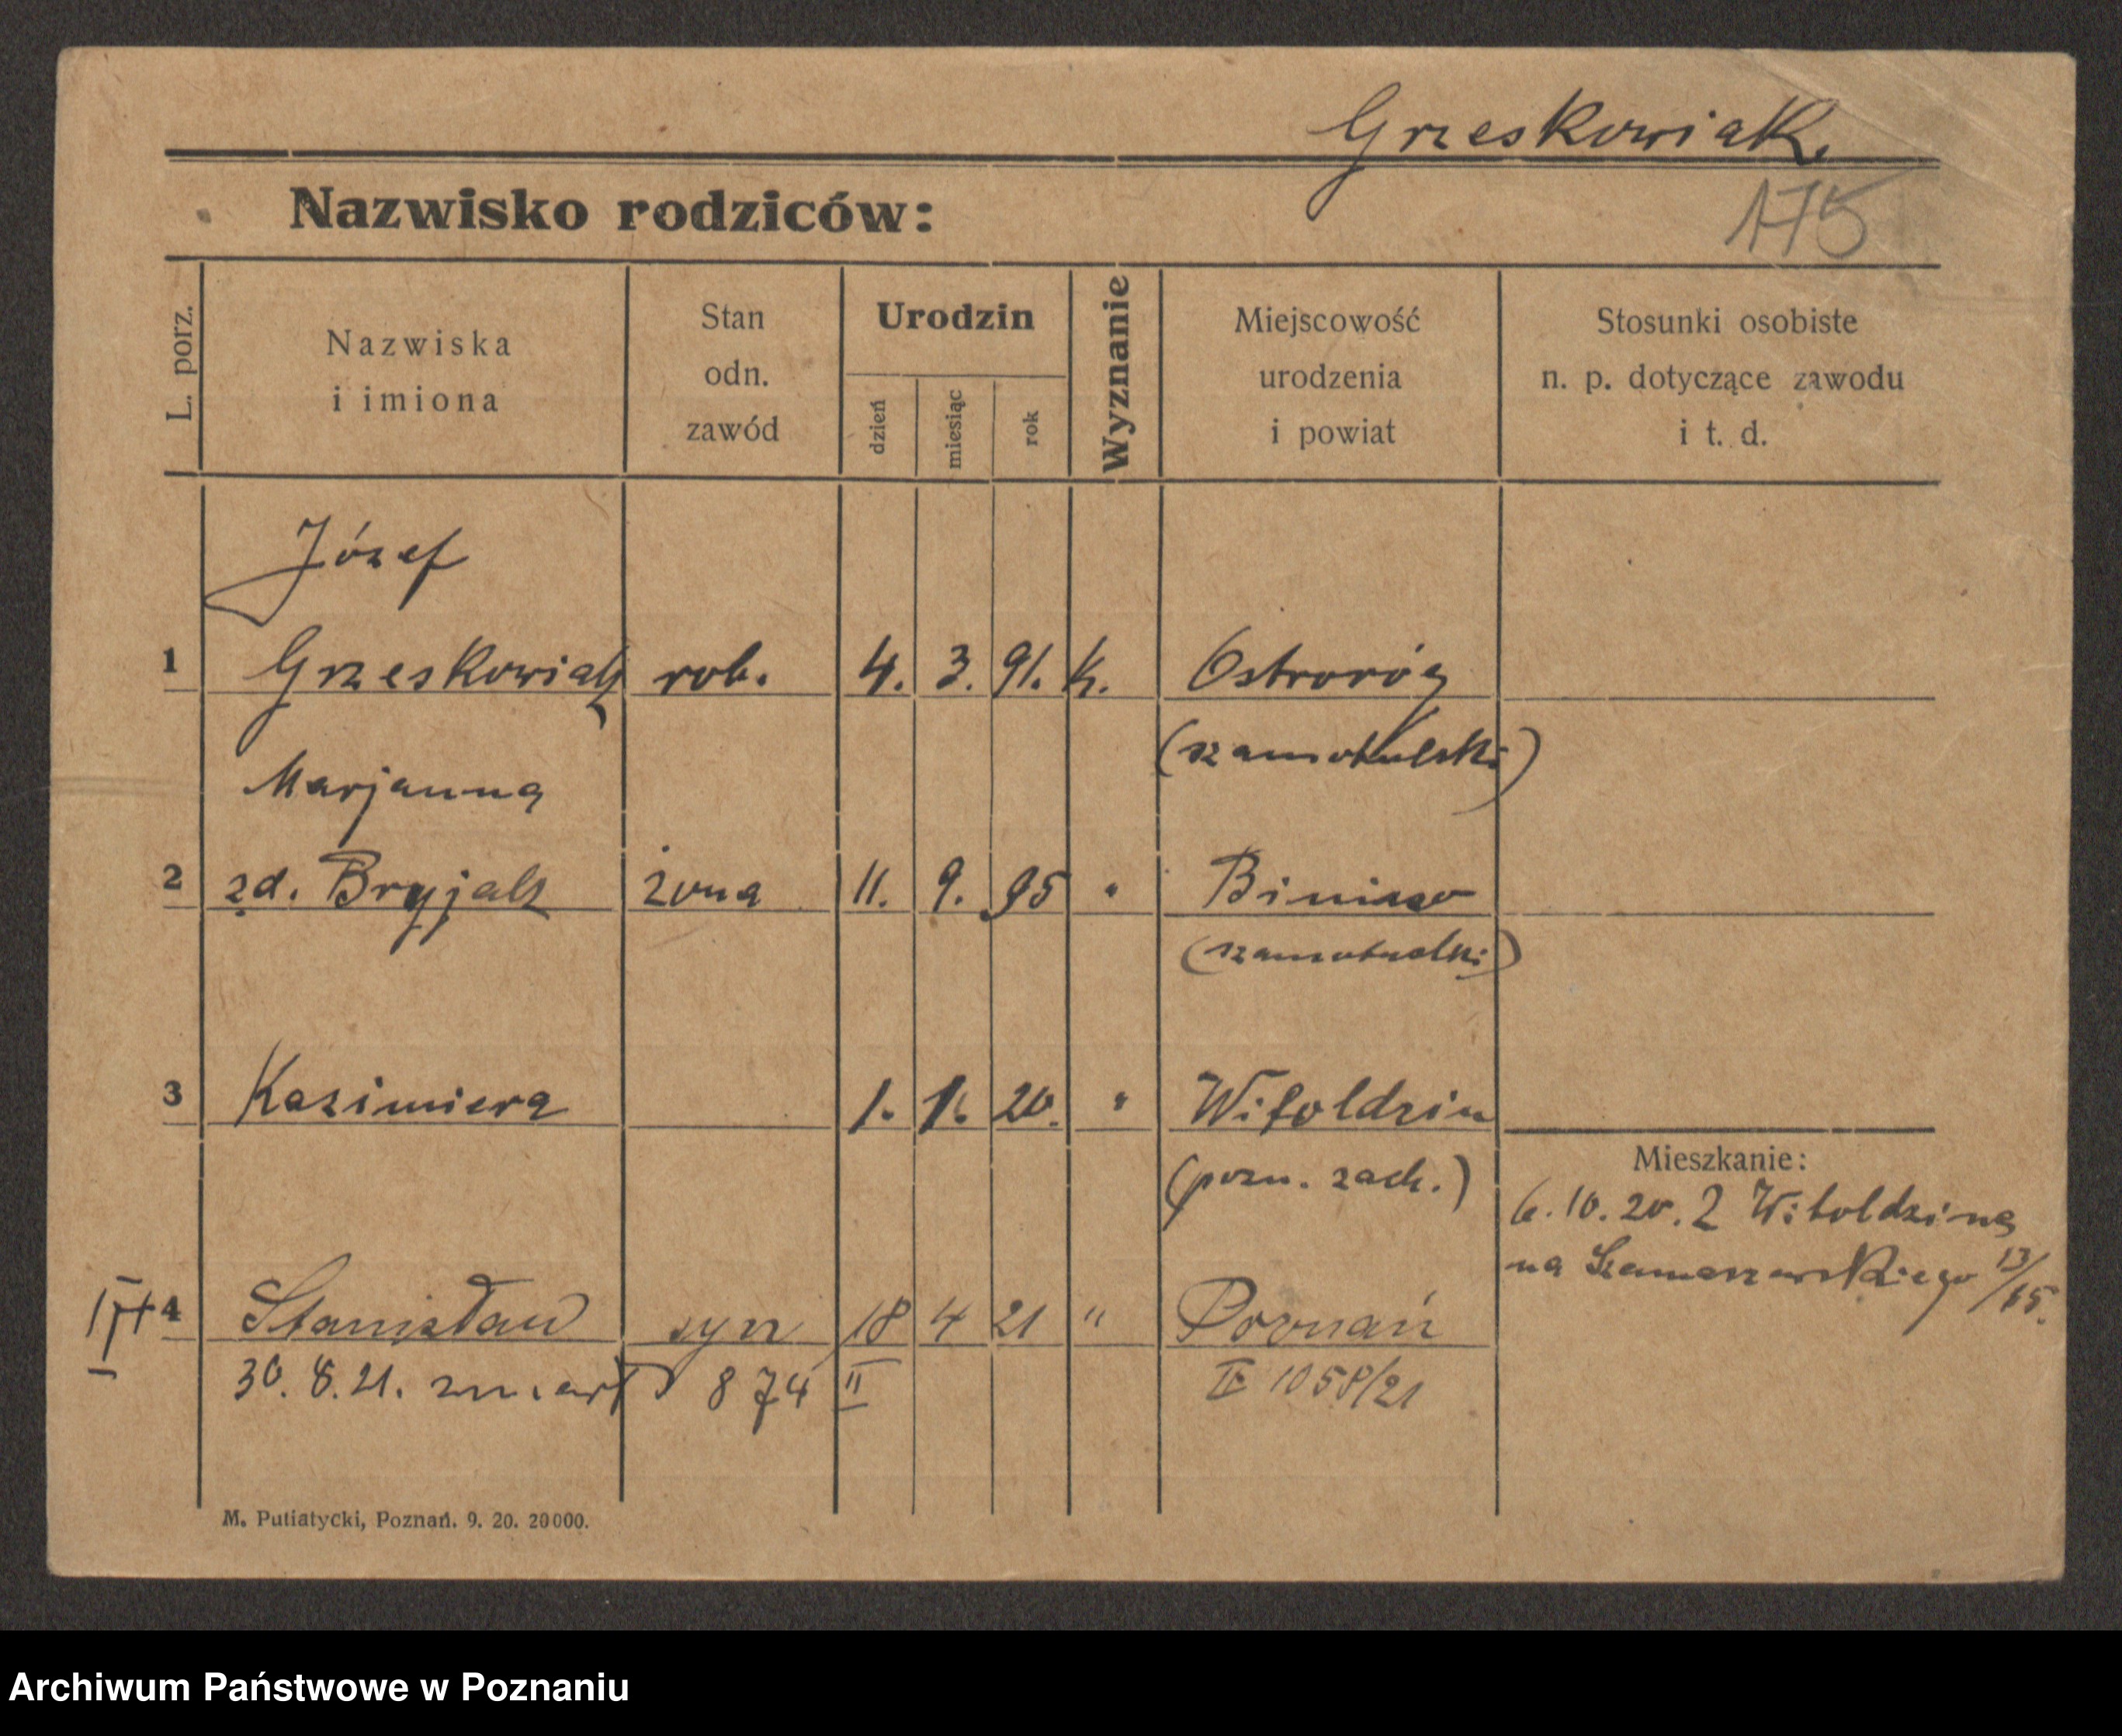 Grzeskowiak.
175
Nazwisko rodziców:
L. porz.
Nazwiska
i imiona
Stan
odn.
zawód
Urodzin
dzień
miesiąc
rok
Wyznanie
Miejscowość
urodzenia
i powiat
Stosunki osobiste
n. p. dotyczące zawodu
i t. d.
Józef
1 Grzeskowiak rob. 4. 3. 91. k. Ostroróg
(szamotulski)
Marjanna
2 zd. Bryjak żona 11. 9. 95 " Biniew
(szamotulski)
3 Kazimiera 1. 1. 20. " Witoldzin
(pozn. zach.)
Mieszkanie:
6. 10. 20. Z Witoldzina
na Szamarzewskiego 13/15.
4 Stanisław syn 18 4 21 " Poznań
30. 8. 21. zmarł 874 II
II 1058/21
M. Putiatycki, Poznań. 9. 20. 20000.
Archiwum Państwowe w Poznaniu